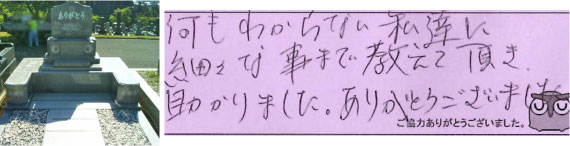 ありがとう
何もわからない私達に
細々な事まで教えて頂き
助かりました。ありがとうございました
ご協力ありがとうございました。